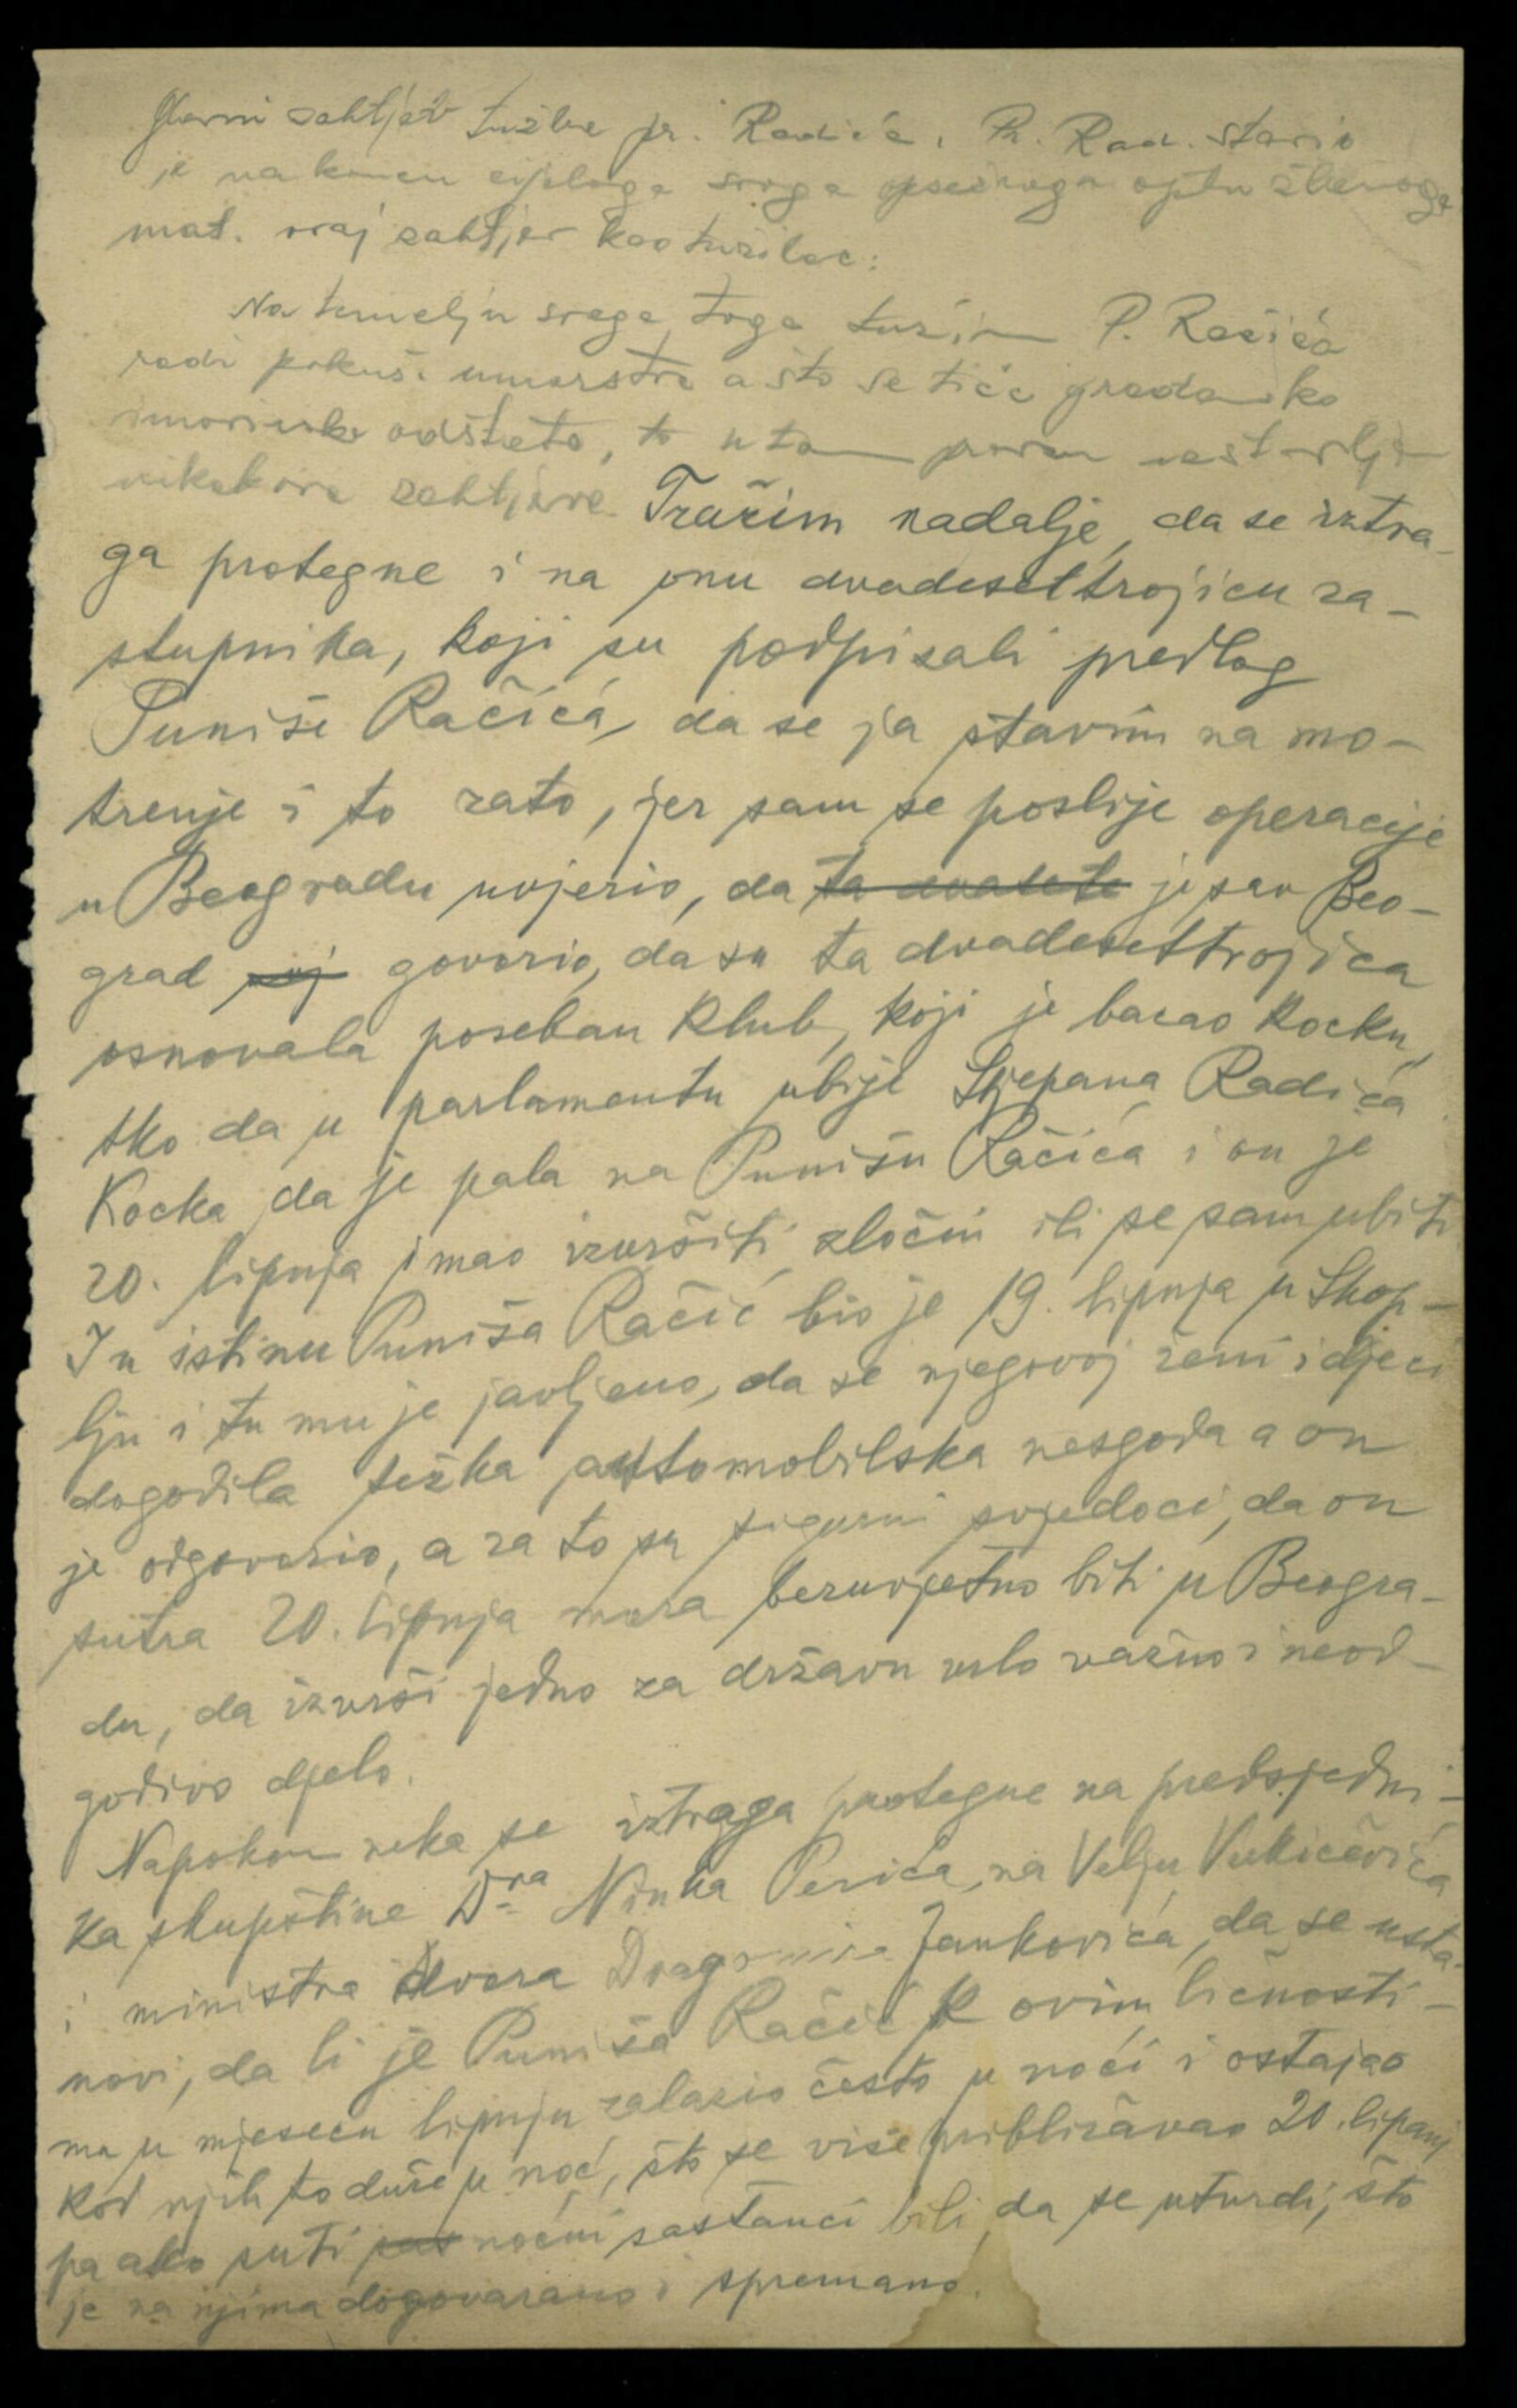 Glavni zahtjev tužbe pr. Radića. Pr. Rad. stavio
je na koncu cijeloga svoga opsežnoga optužbenoga
mat. ovaj zahtjev kao tužilac:
Na temelju svega toga tužim P. Račića
radi pokuš. umorstva a što se tiče građansko
imovinske odštete, to u tom pravcu nestavljam
nikakova zahtjeva. Tražim nadalje, da se iztra-
ga protegne i na onu dvadesettrojicu za-
stupnika, koji su podpisali predlog
Puniše Račića, da se ja stavim na mo-
trenje i to zato, jer sam se poslije operacije
u Beogradu uvjerio, da ta je sav Beo-
grad govorio, da su ta dvadesettrojica
osnovala poseban klub, koji je bacao kocku,
tko da u parlamentu ubije Stjepana Radića
Kocka da je pala na Punišu Račića i on je
20. lipnja imao izvršiti zločin ili se sam ubiti
I u istinu Puniša Račić bio je 19. lipnja u Skop-
lju i tu mu je javljeno, da se njegovoj ženi i djeci
dogodila težka automobilska nesgoda a on
je odgovorio, a za to su sigurni svjedoci, da on
sutra 20. lipnja mora bezuvjetno biti u Beogra-
du, da izvrši jedno za državu vrlo važno i neod-
godivo djelo.
Napokon neka se iztraga protegne na predsjedni-
ka skupštine Dra Ninka Perića, na Velju Vukićevića
i ministra dvora Dragomira Jankovića, da se usta-
novi, da li je Puniša Račić k ovim ličnosti-
ma u mjesecu lipnju zalazio često u noći i ostajao
kod njih to duže u noć, što se više približavao 20. lipanj
pa ako su ti noćni sastanci bili, da se utvrdi, što
je na njima dogovarano i spremano.